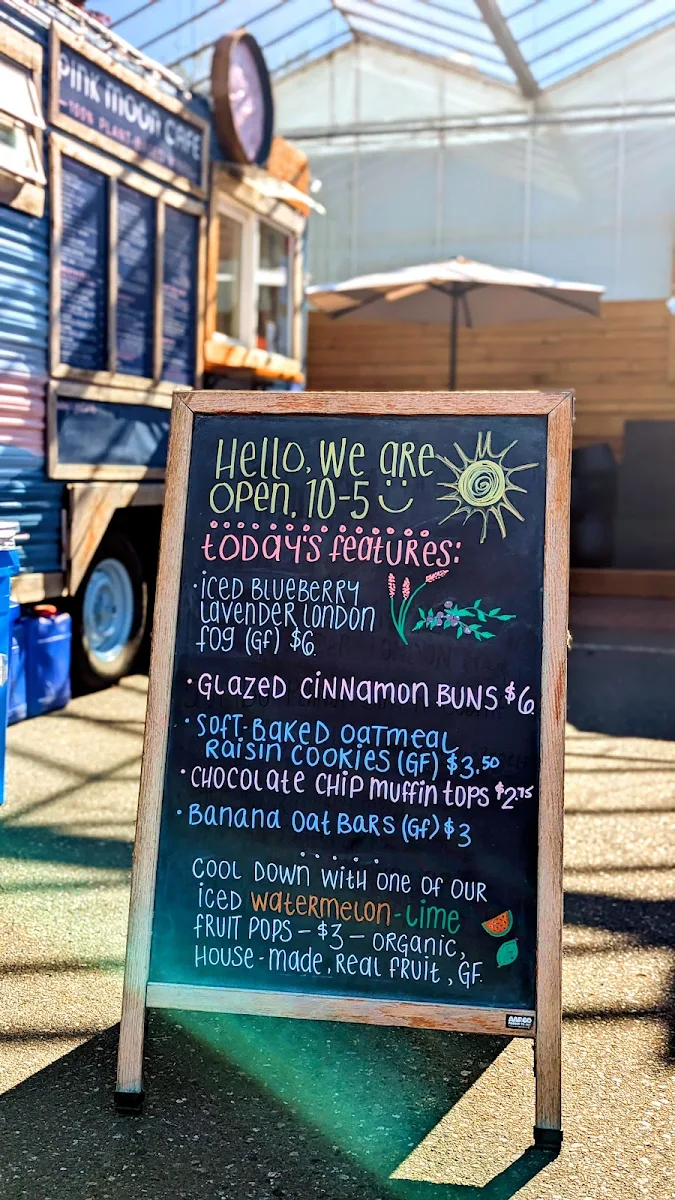 PINK MOON CAFE
100% PLANT-BASED
Hello, We are
open, 10-5
today's features:
·iced BLUEBERRY
Lavender London
fog (GF) $6
·GLAZED CINNamon BUNS $6
·Soft-Baked oatmeal
Raisin cookies (GF) $3.50
·CHocolate CHip muffin tops $2.75
·Banana oat Bars (Gf) $3
COOL DOWN WITH one of our
iced watermelon-Lime
fruit pops – $3 – organic,
House-made, Real fruit, GF.
AARCO